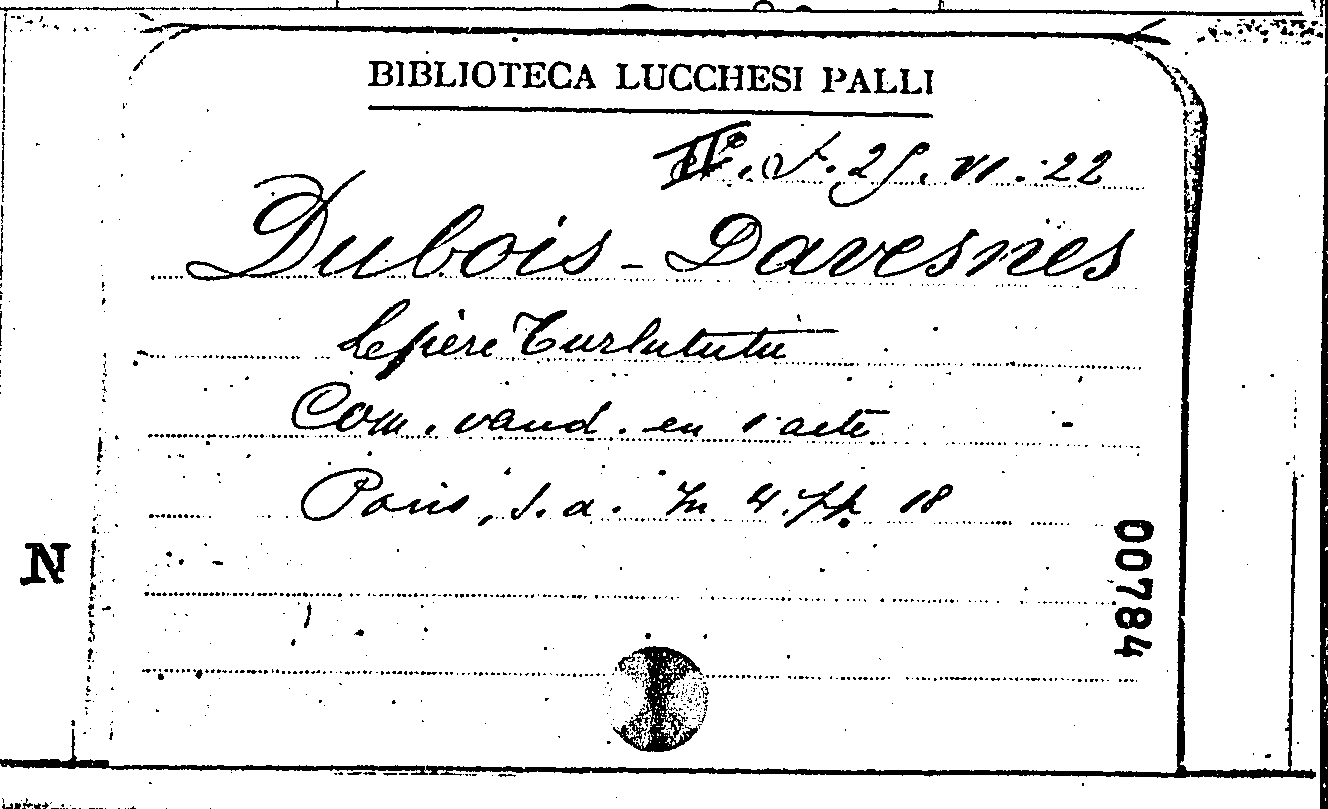 BIBLIOTECA LUCCHESI PALLI
25. VI. 22
Dubois-Davesnes
Le père Turlututu
Com. vaud. en 1 acte
Paris, s. a. In 4. pp. 18
N
00784